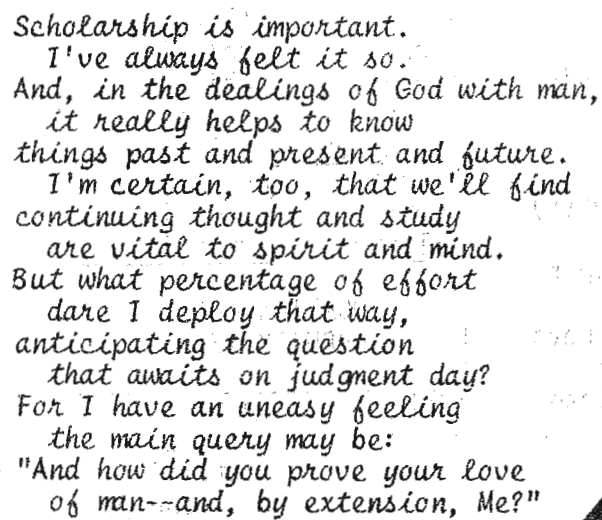 Scholarship is important.
I've always felt it so.
And, in the dealings of God with man,
it really helps to know
things past and present and future.
I'm certain, too, that we'll find
continuing thought and study
are vital to spirit and mind.
But what percentage of effort
dare I deploy that way,
anticipating the question
that awaits on judgment day?
For I have an uneasy feeling
the main query may be:
"And how did you prove your love
of man--and, by extension, Me?"